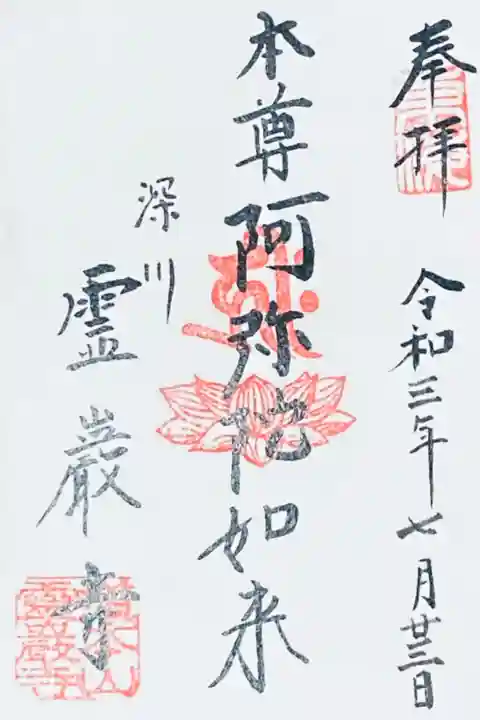 奉拝
令和三年七月廿三日
本尊阿弥陀如来
深川
霊巌寺